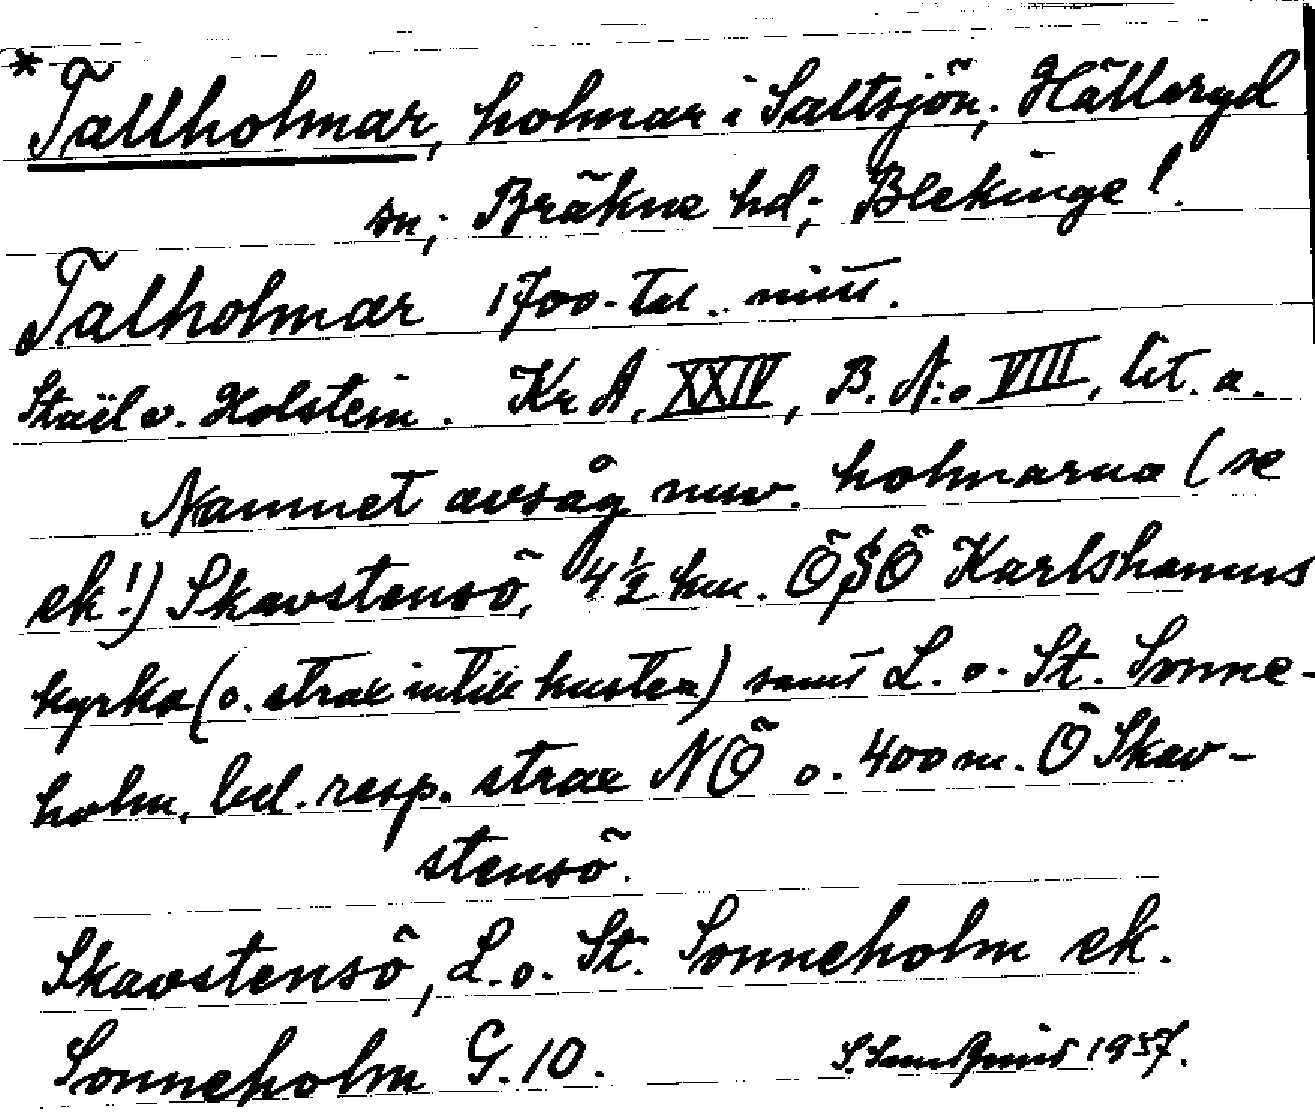 *Tallholmar, holmar i Saltsjön, Hällaryd
sn, Bräkne hd, Blekinge!
Talholmar 1700-tal. mitt.
Staël v. Holstein. KrA, XXIV, B. N:o VIII, lit. a.
Namnet avsåg nuv. holmarna (se
ek!) Skavstensö, 4 1/2 km. ÖSÖ Karlshamns
kyrka (o. strax intill kusten) samt L. o. St. Sonne-
holm, bel. resp. strax NÖ o. 400 m. Ö Skav-
stensö.
Skavstensö, L. o. St. Sonneholm ek.
Sonneholm G. 10. 1937.